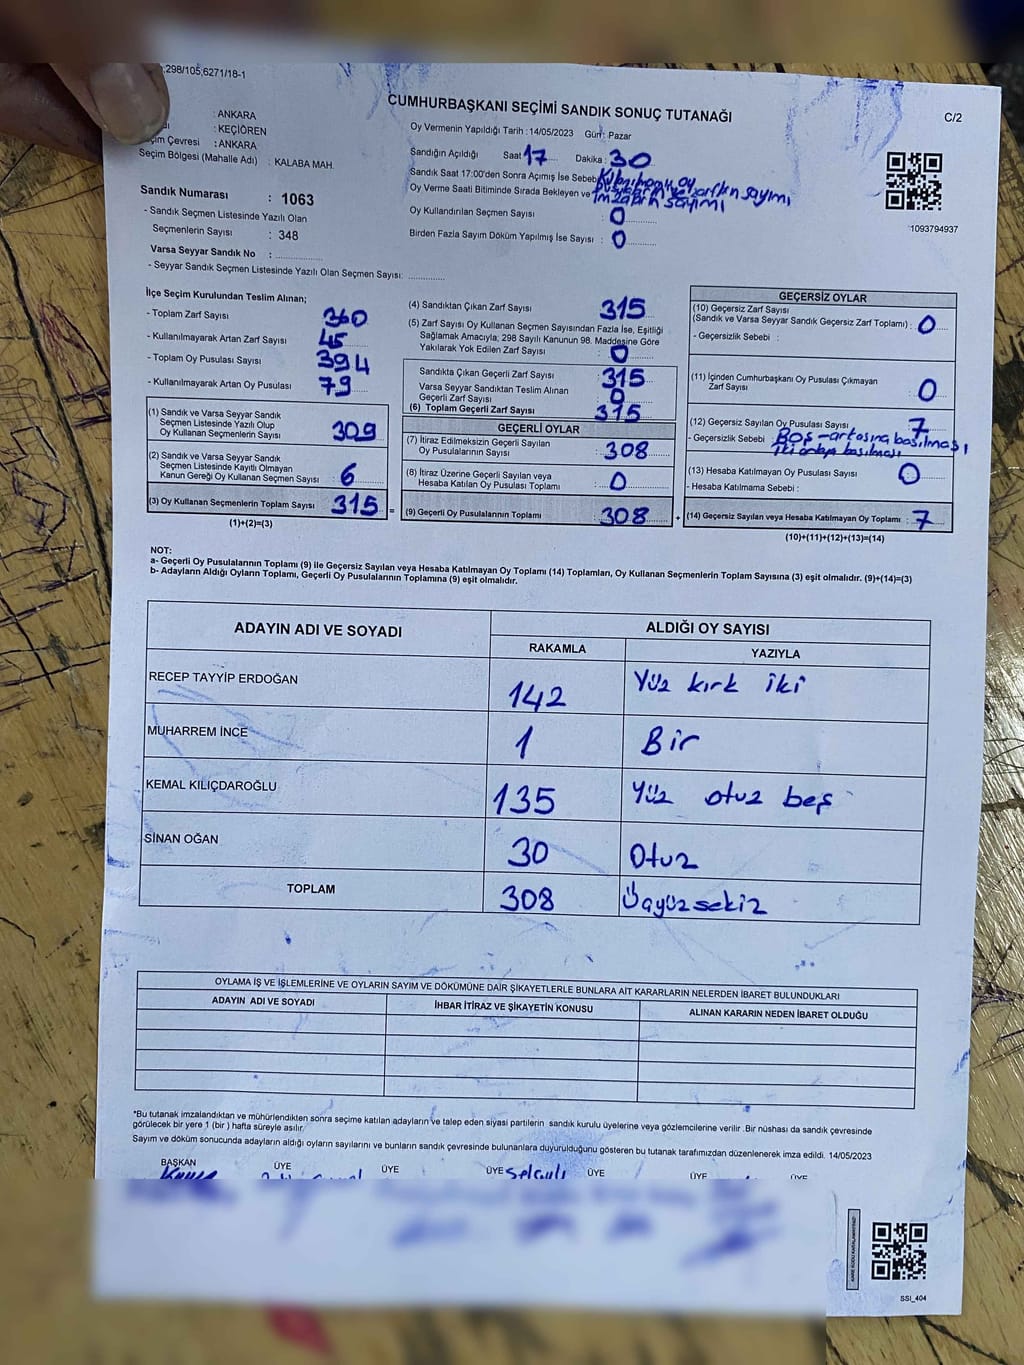 298/105,6271/18-1
CUMHURBAŞKANI SEÇİMİ SANDIK SONUÇ TUTANAĞI
C/2
: ANKARA
: KEÇİÖREN
Seçim Çevresi : ANKARA
Seçim Bölgesi (Mahalle Adı) : KALABA MAH.
Oy Vermenin Yapıldığı Tarih : 14/05/2023 Gün : Pazar
Sandığın Açıldığı Saat 17 Dakika : 30
Sandık Saat 17:00'den Sonra Açımış İse Sebebi
Oy Verme Saati Bitiminde Sırada Bekleyen ve
zarfların sayımı
imzaların sayımı
Oy Kullandırılan Seçmen Sayısı : 0
Birden Fazla Sayım Döküm Yapılmış İse Sayısı : 0
1093794937
Sandık Numarası : 1063
- Sandık Seçmen Listesinde Yazılı Olan
Seçmenlerin Sayısı : 348
Varsa Seyyar Sandık No : ..............
- Seyyar Sandık Seçmen Listesinde Yazılı Olan Seçmen Sayısı: ............
İlçe Seçim Kurulundan Teslim Alınan;
- Toplam Zarf Sayısı 360
- Kullanılmayarak Artan Zarf Sayısı 45
- Toplam Oy Pusulası Sayısı 394
- Kullanılmayarak Artan Oy Pusulası 79
(1) Sandık ve Varsa Seyyar Sandık
Seçmen Listesinde Yazılı Olup
Oy Kullanan Seçmenlerin Sayısı 309
(2) Sandık ve Varsa Seyyar Sandık
Seçmen Listesinde Kayıtlı Olmayan
Kanun Gereği Oy Kullanan Seçmen Sayısı : 6
(3) Oy Kullanan Seçmenlerin Toplam Sayısı 315
(1)+(2)=(3)
(4) Sandıktan Çıkan Zarf Sayısı 315
(5) Zarf Sayısı Oy Kullanan Seçmen Sayısından Fazla İse, Eşitliği
Sağlamak Amacıyla; 298 Sayılı Kanunun 98. Maddesine Göre
Yakılarak Yok Edilen Zarf Sayısı : 0
Sandıkta Çıkan Geçerli Zarf Sayısı : 315
Varsa Seyyar Sandıktan Teslim Alınan
Geçerli Zarf Sayısı : 0
(6) Toplam Geçerli Zarf Sayısı : 315
GEÇERLİ OYLAR
(7) İtiraz Edilmeksizin Geçerli Sayılan
Oy Pusulalarının Sayısı : 308
(8) İtiraz Üzerine Geçerli Sayılan veya
Hesaba Katılan Oy Pusulası Toplamı : 0
= (9) Geçerli Oy Pusulalarının Toplamı : 308
GEÇERSİZ OYLAR
(10) Geçersiz Zarf Sayısı
(Sandık ve Varsa Seyyar Sandık Geçersiz Zarf Toplamı) : 0
- Geçersizlik Sebebi :
(11) İçinden Cumhurbaşkanı Oy Pusulası Çıkmayan
Zarf Sayısı : 0
(12) Geçersiz Sayılan Oy Pusulası Sayısı : 7
- Geçersizlik Sebebi : Boş - arkasına basılması
basılması
(13) Hesaba Katılmayan Oy Pusulası Sayısı : 0
- Hesaba Katılmama Sebebi :
+ (14) Geçersiz Sayılan veya Hesaba Katılmayan Oy Toplamı : 7
(10)+(11)+(12)+(13)=(14)
NOT:
a- Geçerli Oy Pusulalarının Toplamı (9) ile Geçersiz Sayılan veya Hesaba Katılmayan Oy Toplamı (14) Toplamları, Oy Kullanan Seçmenlerin Toplam Sayısına (3) eşit olmalıdır. (9)+(14)=(3)
b- Adayların Aldığı Oyların Toplamı, Geçerli Oy Pusulalarının Toplamına (9) eşit olmalıdır.
ADAYIN ADI VE SOYADI ALDIĞI OY SAYISI
RAKAMLA YAZIYLA
RECEP TAYYİP ERDOĞAN 142 Yüz kırk iki
MUHARREM İNCE 1 Bir
KEMAL KILIÇDAROĞLU 135 Yüz otuz beş
SİNAN OĞAN 30 Otuz
TOPLAM 308 Üçyüzsekiz
OYLAMA İŞ VE İŞLEMLERİNE VE OYLARIN SAYIM VE DÖKÜMÜNE DAİR ŞİKAYETLERLE BUNLARA AİT KARARLARIN NELERDEN İBARET BULUNDUKLARI
ADAYIN ADI VE SOYADI İHBAR İTİRAZ VE ŞİKAYETİN KONUSU ALINAN KARARIN NEDEN İBARET OLDUĞU
*Bu tutanak imzalandıktan ve mühürlendikten sonra seçime katılan adayların ve talep eden siyasi partilerin sandık kurulu üyelerine veya gözlemcilerine verilir .Bir nüshası da sandık çevresinde
görülecek bir yere 1 (bir ) hafta süreyle asılır.
Sayım ve döküm sonucunda adayların aldığı oyların sayılarını ve bunların sandık çevresinde bulunanlara duyurulduğunu gösteren bu tutanak tarafımızdan düzenlenerek imza edildi. 14/05/2023
BAŞKAN ÜYE ÜYE ÜYE ÜYE ÜYE ÜYE
SSİ_404